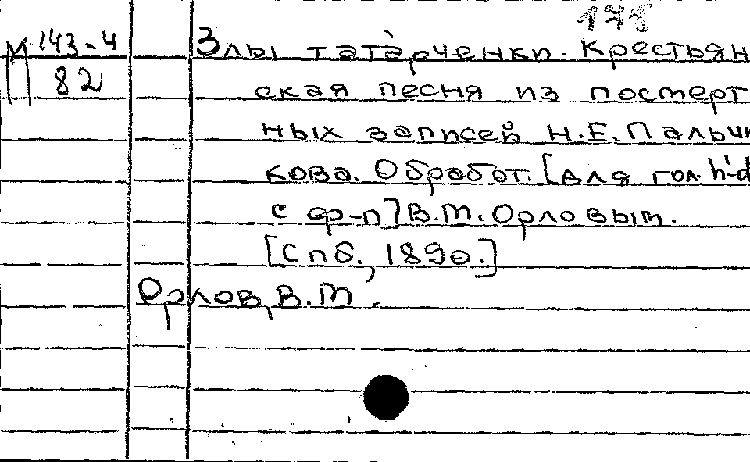 171
М 143-4
82
Злы татарченки. Крестьян
ская песня из посмерт
ных записей Н.Е. Пальчи
кова. Обработ. [для гол. h-d
с ф-п] В.М. Орловым.
[Спб., 1890.]
Орлов, В.М.